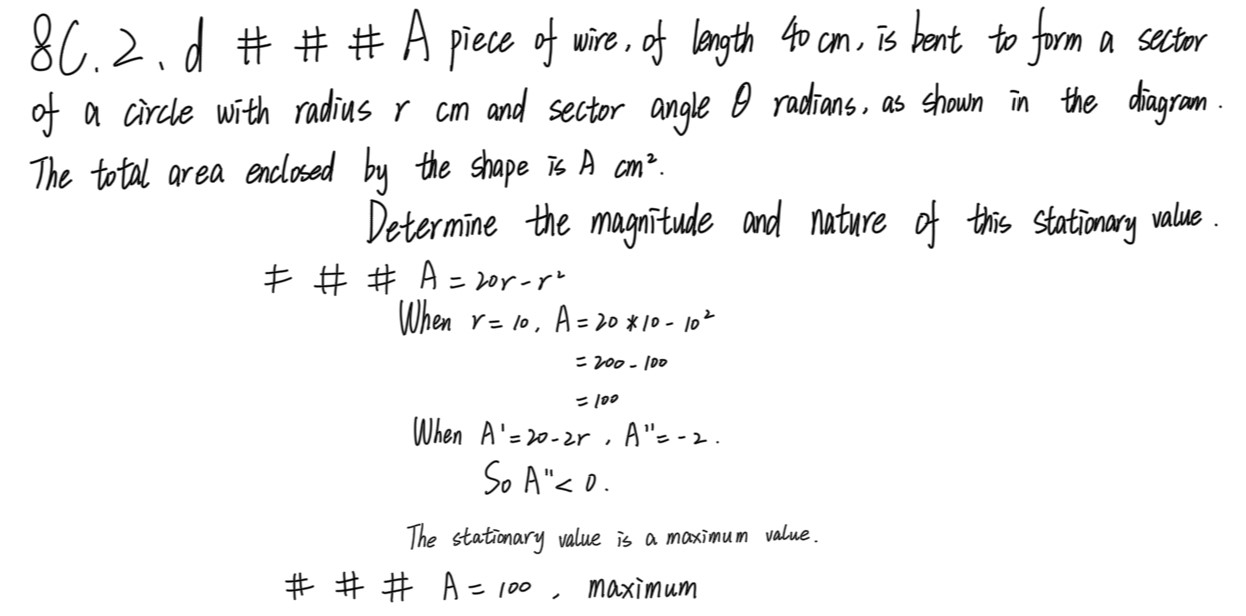 8C.2.d # # # A piece of wire, of length 40 cm, is bent to form a sector
of a circle with radius r cm and sector angle θ radians, as shown in the diagram.
The total area enclosed by the shape is A cm².
Determine the magnitude and nature of this stationary value.
# # # A = 20r - r²
When r = 10, A = 20 * 10 - 10²
= 200 - 100
= 100
When A' = 20 - 2r, A" = -2.
So A" < 0.
The stationary value is a maximum value.
# # # A = 100, maximum